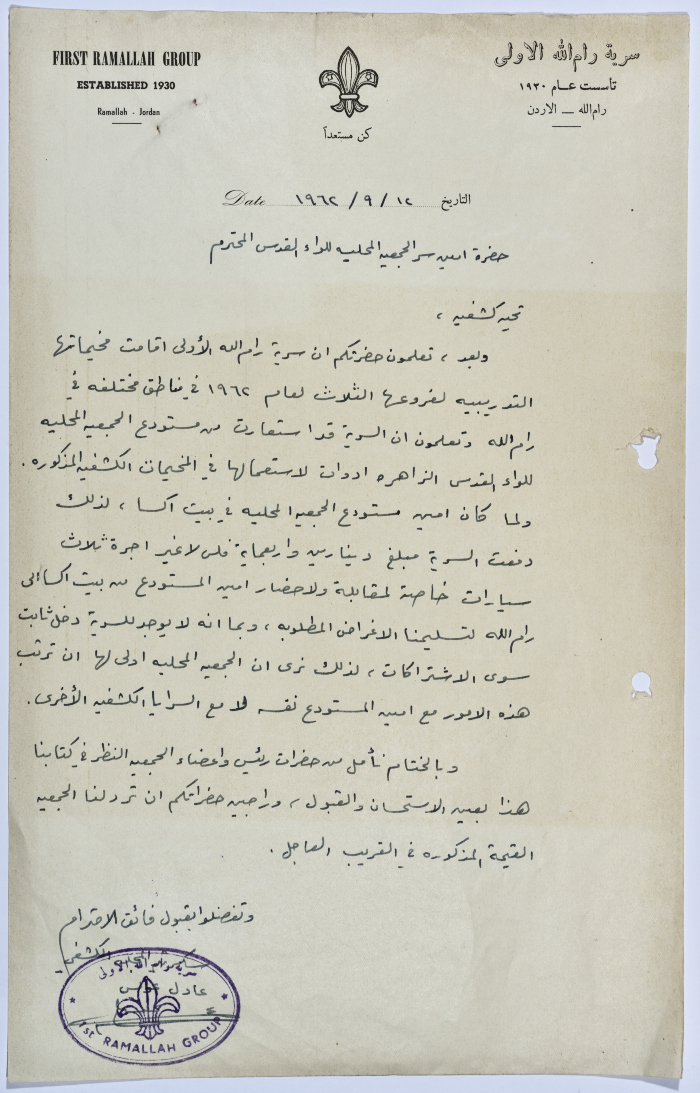 FIRST RAMALLAH GROUP
ESTABLISHED 1930
Ramallah - Jordan
سرية رام الله الاولى
تأسست عـام ١٩٣٠
رام الله — الاردن
كن مستعداً
Date ١٢ / ٩ / ١٩٦٢ التاريخ
حضرة امين سر الجمعيه المحليه للواء القدس المحترم
تحيه كشفيه ،
وبعد ، تعلمون حضرتكم ان سرية رام الله الأولى اقامت مخيماتها
التدريبيه لفروعها الثلاث لعام ١٩٦٢ في مناطق مختلفه في
رام الله وتعلمون ان السرية قد استعارت من مستودع الجمعيه المحليه
للواء القدس الزاهره ادوات لاستعمالها في المخيمات الكشفيه المذكوره .
ولما كان امين مستودع الجمعيه المحليه في بيت اكسا ، لذلك
دفعت السرية مبلغ دينارين واربعماية فلس لا غير اجرة ثلاث
سيارات خاصة لمقابلة ولاحضار امين المستودع من بيت اكسا الى
رام الله لتسليمنا الاغراض المطلوبه ، وبما انه لا يوجد للسرية دخل ثابت
سوى الاشتراكات ، لذلك نرى ان الجمعيه المحليه اولى لها ان ترتب
هذه الامور مع امين المستودع نفسه لا مع السرايا الكشفيه الأخرى .
وبالختام نأمل من حضرات رئيس واعضاء الجمعيه النظر في كتابنا
هذا بعين الاستحسان والقبول ، وراجين حضراتكم ان ترد لنا الجمعيه
القيمة المذكوره في القريب العاجل .
وتفضلوا بقبول فائق الاحترام
الكشفي
عادل
سرية رام الله الاولى
1st RAMALLAH GROUP